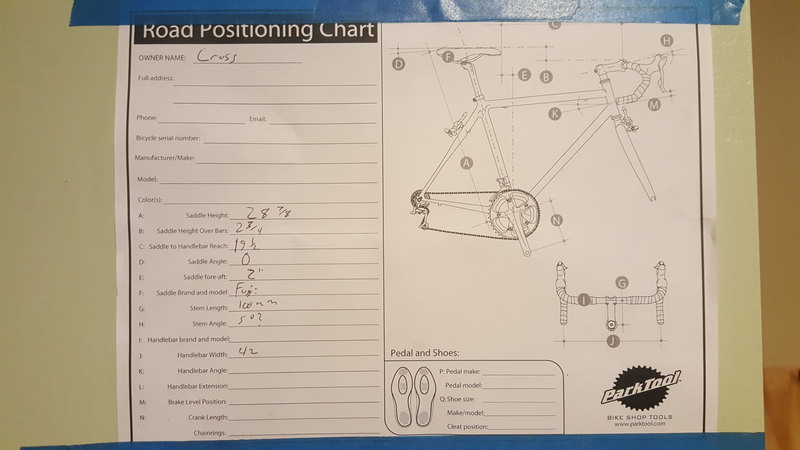 Road Positioning Chart
OWNER NAME: Cross
Full address:
Phone: Email:
Bicycle serial number:
Manufacturer/Make:
Model:
Color(s):
A: Saddle Height: 28 7/8
B: Saddle Height Over Bars: 2 3/4
C: Saddle to Handlebar Reach: 19 1/2
D: Saddle Angle: 0
E: Saddle fore-aft: 2"
F: Saddle Brand and model: Fuji
G: Stem Length: 100mm
H: Stem Angle: 5°?
I: Handlebar brand and model:
J: Handlebar Width: 42
K: Handlebar Angle:
L: Handlebar Extension:
M: Brake Level Position:
N: Crank Length:
Chainrings:
C
H
D
F
E
B
M
K
A
N
G
I
J
Pedal and Shoes:
P: Pedal make:
Pedal model:
Q: Shoe size:
Make/model:
Cleat position:
ParkTool
BIKE SHOP TOOLS
www.parktool.com